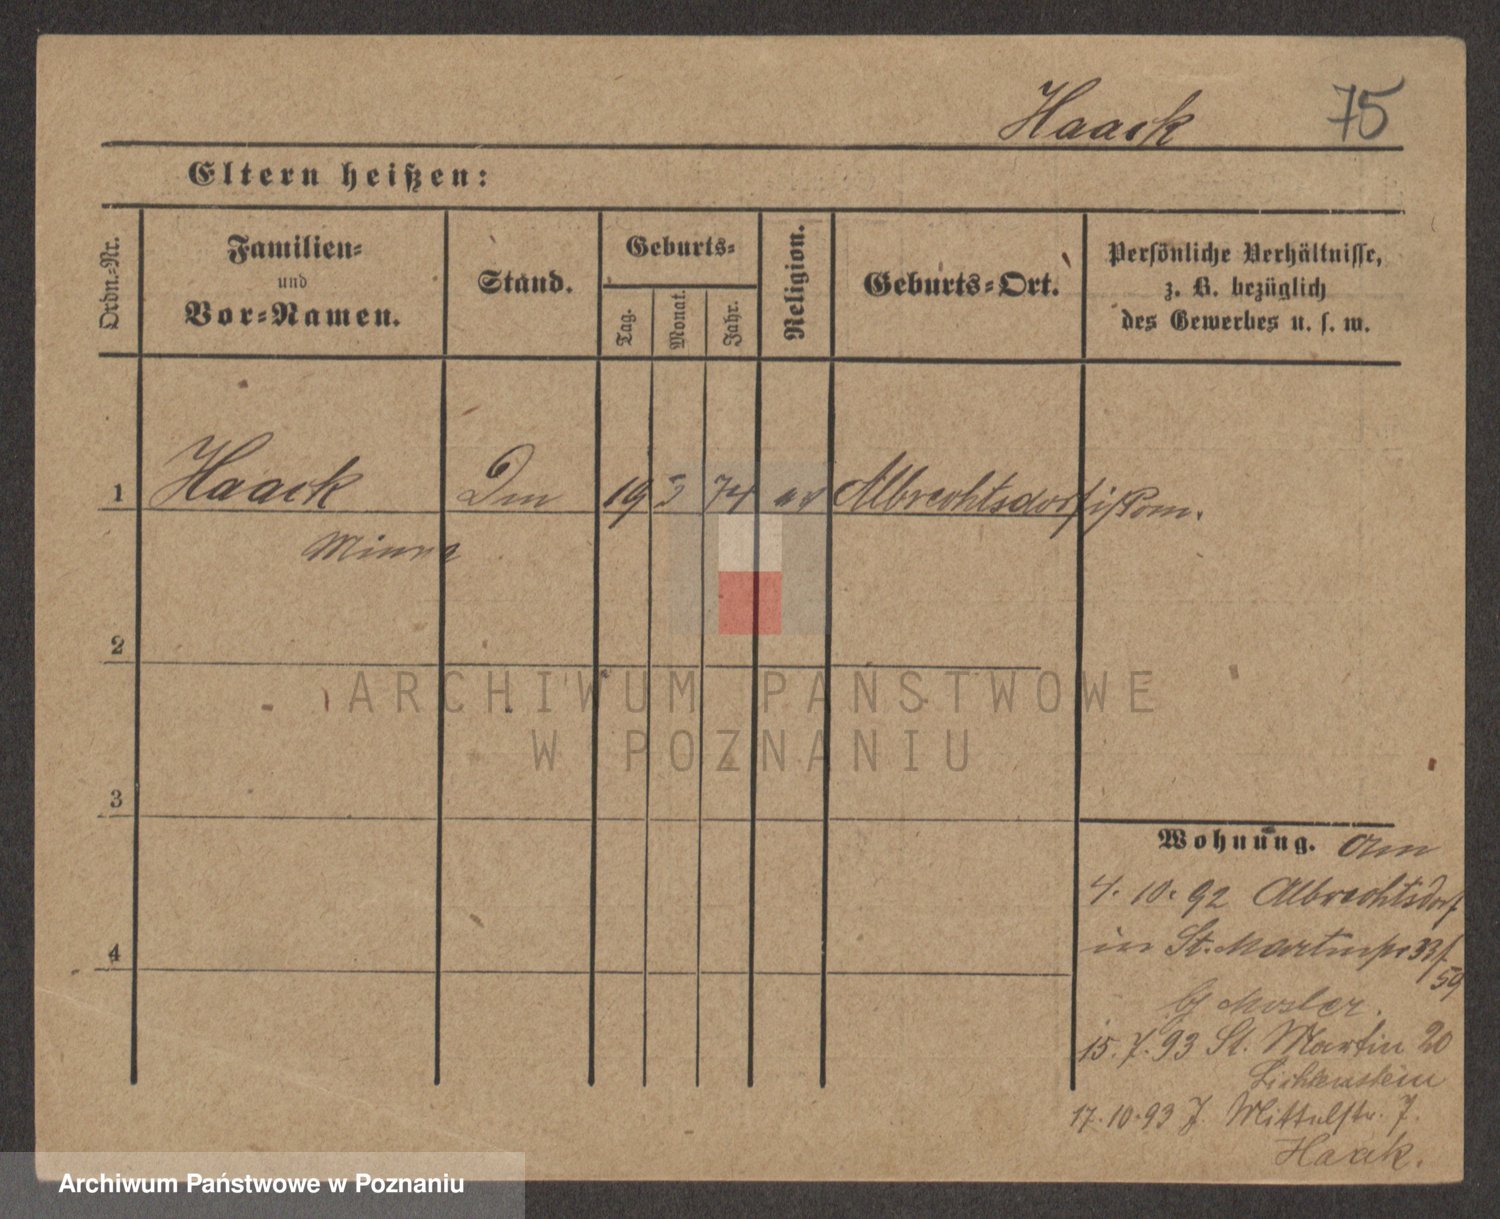 Haack 75
Eltern heißen:
Ordn.-Nr.
Familien-
und
Vor-Namen.
Stand.
Geburts-
Tag.
Monat.
Jahr.
Religion.
Geburts-Ort.
Persönliche Verhältnisse,
z. B. bezüglich
des Gewerbes u. s. w.
1 Haack 19 3 74 Albrechtsdorf i/Pom.
Minna
2
3
4
Wohnung. Am
4. 10. 92 Albrechtsdorf
in St. Martinstr 33/
59
by Mosler.
15. 7. 93 St. Martin 20
Lichtenstein
17. 10. 93 J. Mittelstr. 7.
Haack.
ARCHIWUM PAŃSTWOWE
W POZNANIU
Archiwum Państwowe w Poznaniu